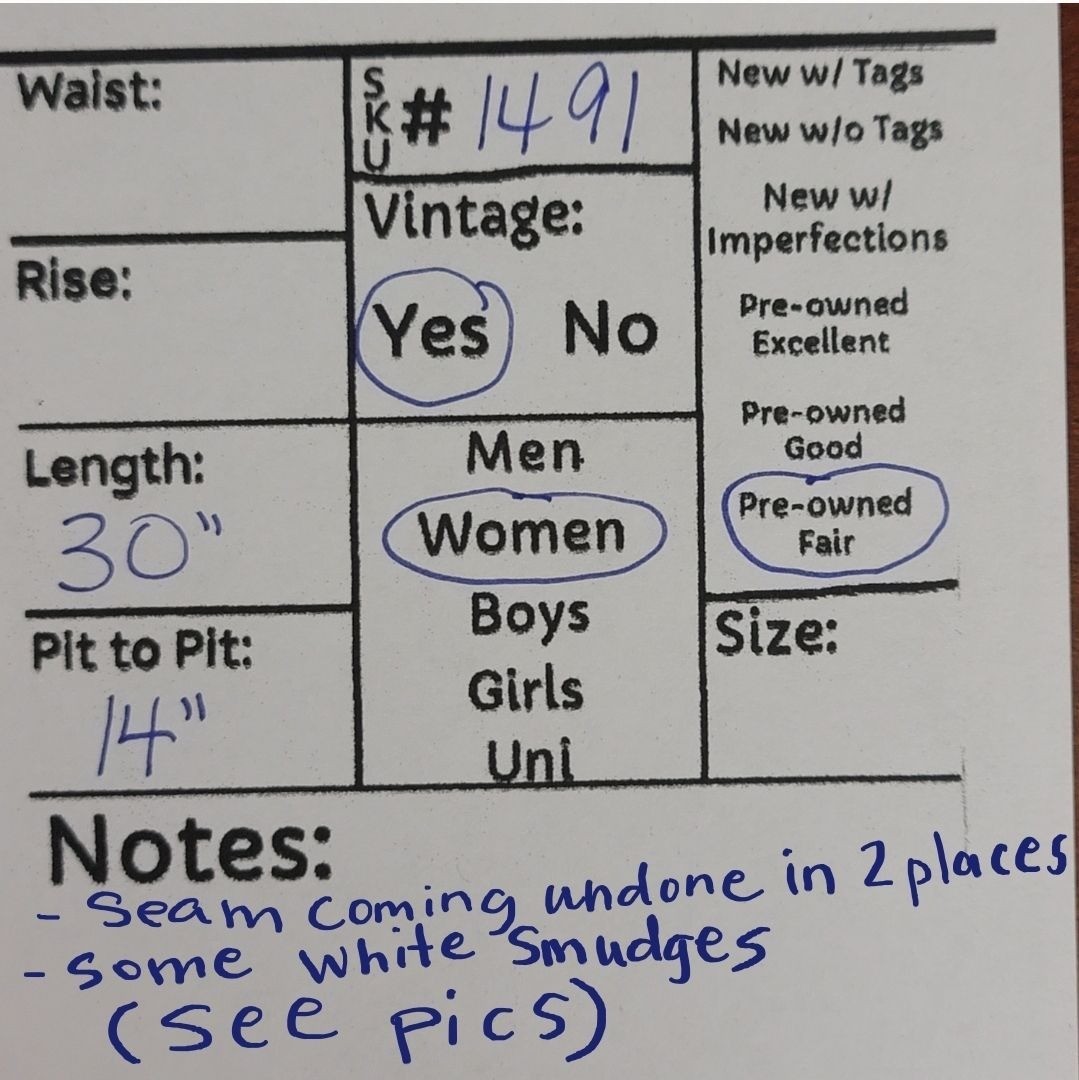 Waist:
SKU # 1491
New w/ Tags
New w/o Tags
New w/
Imperfections
Pre-owned
Excellent
Pre-owned
Good
Pre-owned
Fair
Vintage:
Yes No
Rise:
Length:
30"
Men
Women
Boys
Girls
Uni
Size:
Pit to Pit:
14"
Notes:
- Seam coming undone in 2 places
- some white smudges
(see pics)